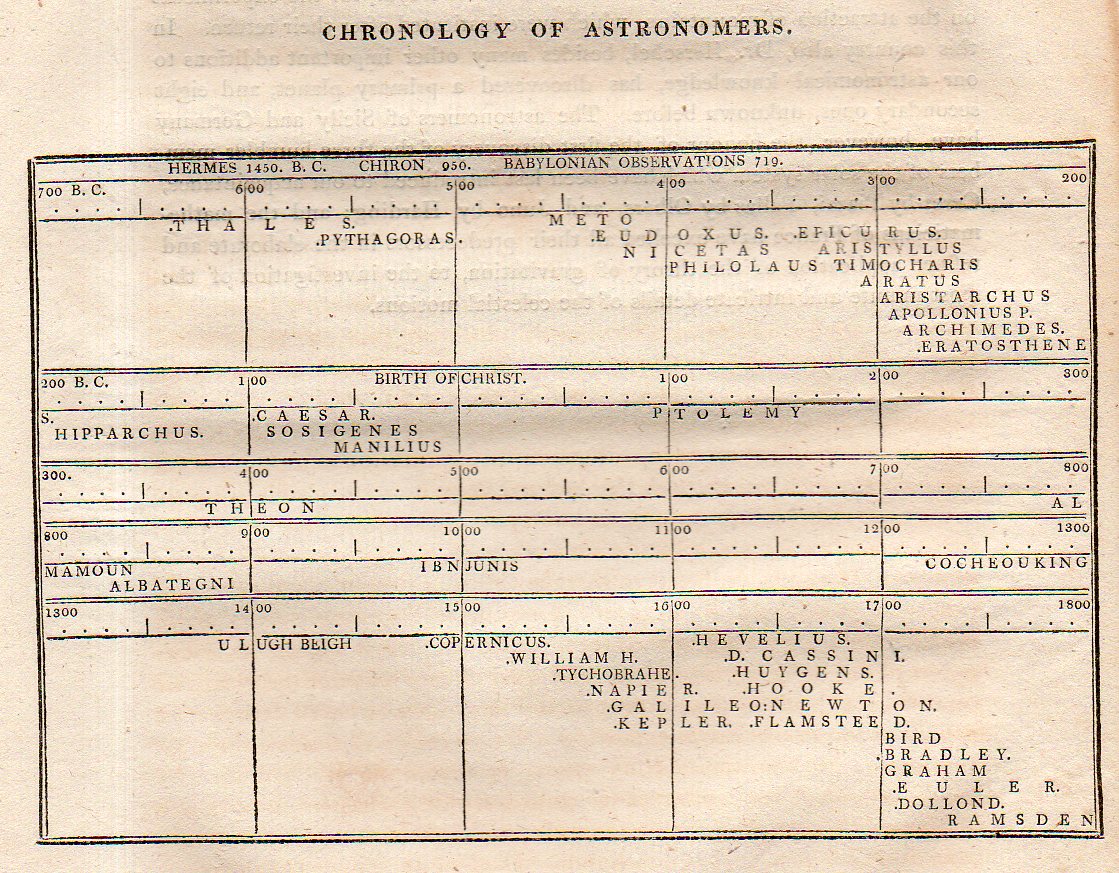 CHRONOLOGY OF ASTRONOMERS.
HERMES 1450. B. C. CHIRON 950. BABYLONIAN OBSERVATIONS 719.
700 B. C. 600 500 400 300 200
.THALES. METO
.PYTHAGORAS. .EUDOXUS. .EPICURUS.
NICETAS ARISTYLLUS
PHILOLAUS TIMOCHARIS
ARATUS
ARISTARCHUS
APOLLONIUS P.
ARCHIMEDES.
.ERATOSTHENE
200 B. C. 100 BIRTH OF CHRIST. 100 200 300
S. .CAESAR. PTOLEMY
HIPPARCHUS. SOSIGENES
MANILIUS
300. 400 500 600 700 800
THEON AL
800 900 1000 1100 1200 1300
MAMOUN IBN JUNIS COCHEOUKING
ALBATEGNI
1300 1400 1500 1600 1700 1800
ULUGH BEIGH .COPERNICUS. .HEVELIUS.
.WILLIAM H. .D. CASSINI.
.TYCHOBRAHE. .HUYGENS.
.NAPIER. .HOOKE.
.GALILEO:NEWTON.
.KEPLER. .FLAMSTEED.
BIRD
.BRADLEY.
GRAHAM
.EULER.
.DOLLOND.
RAMSDEN